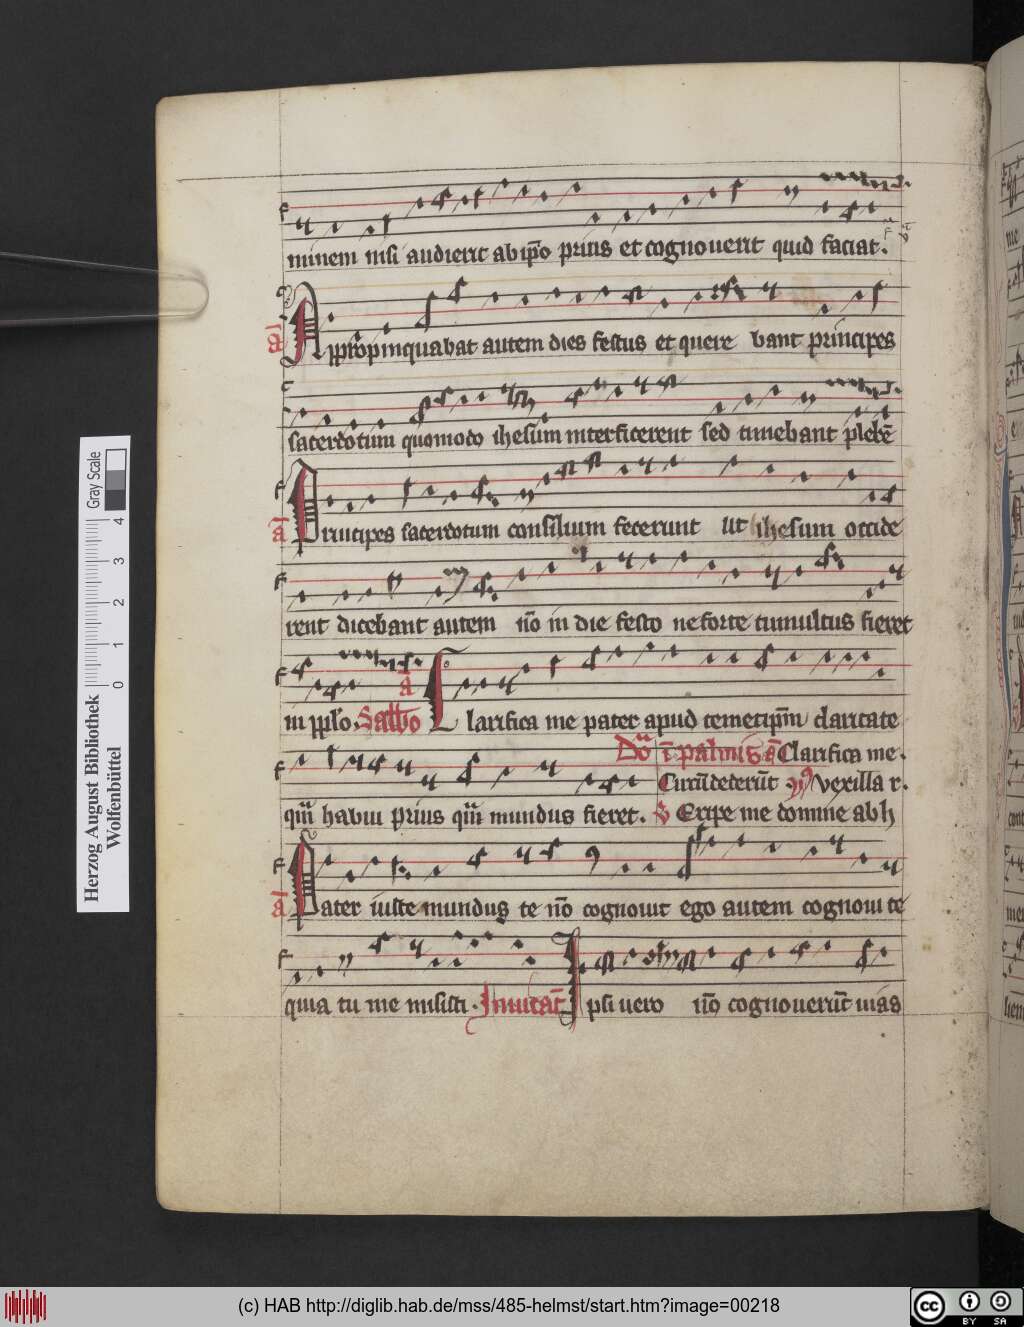 minem nisi audierit ab ip̄o prius et cognouerit quid faciat.
a̅ Appropinquabat autem dies festus et quere bant principes
sacerdotum quomodo ihesum interficerent sed timebant plebē
a̅ Principes sacerdotum consilium fecerunt ut ihesum occide
rent dicebant autem nō in die festo ne forte tumultus fieret
in pplo. Sabbo a̅ Clarifica me pater apud temetipm̄ claritate
Do ī palmis a̅ Clarifica me.
Circūdederūt. ym9 vexilla r.
quā habui prius quā mundus fieret. Eripe me domine ab h
a̅ Pater iuste mundus te nō cognouit ego autem cognoui te
quia tu me misisti. Inuitat̄ Ipsi uero nō cognouerūt uias
Herzog August Bibliothek
Wolfenbüttel
0 1 2 3 4
Gray Scale
(c) HAB http://diglib.hab.de/mss/485-helmst/start.htm?image=00218
cc BY SA